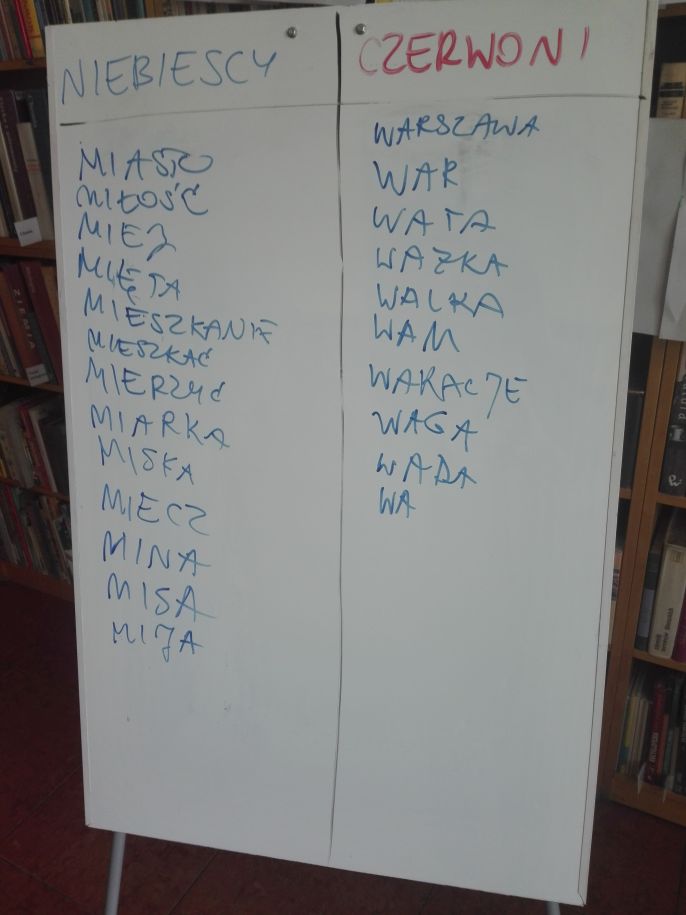 NIEBIESCY
MIASTO
MIŁOŚĆ
MIEJ
MIĘTA
MIESZKANIE
MIESZKAĆ
MIERZYĆ
MIARKA
MISKA
MIECZ
MINA
MISA
MIJA
CZERWONI
WARSZAWA
WAR
WATA
WAŻKA
WALKA
WAM
WAKACJE
WAGA
WADA
WA
ZIEMIA